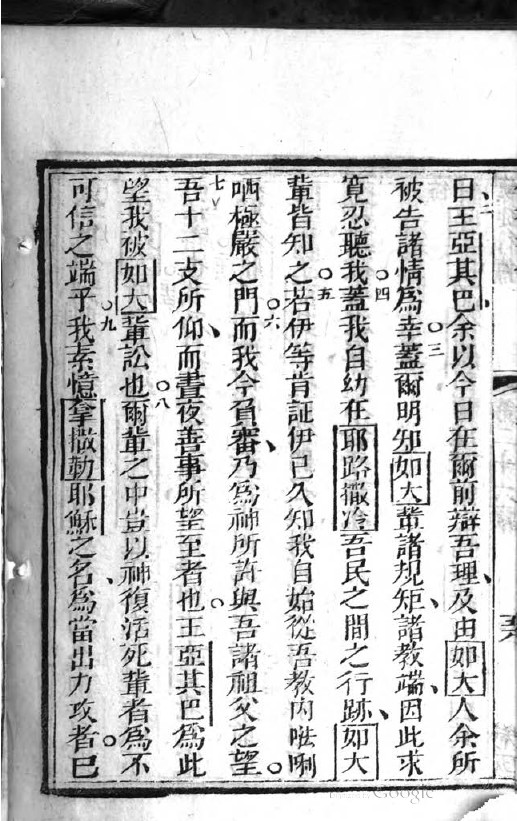 二曰王亞其巴余以今日在爾前辯吾理及由如大人余所
被告諸情為幸三蓋爾明知如大輩諸規矩諸教端因此求
寬忍聽我四蓋我自幼在耶路撒冷吾民之間之行跡如大
輩皆知之五若伊等肯証伊已久知我自始從吾教內𠵽唎
哂極嚴之門六而我今負審乃為神所許與吾諸祖父之望
七吾十二支所仰而晝夜善事所望至者也王亞其巴為此
望我被如大輩訟也八爾輩之中豈以神復活死輩者為不
可信之端乎九我素憶拿撒勒耶穌之名為當出力攻者已
Google